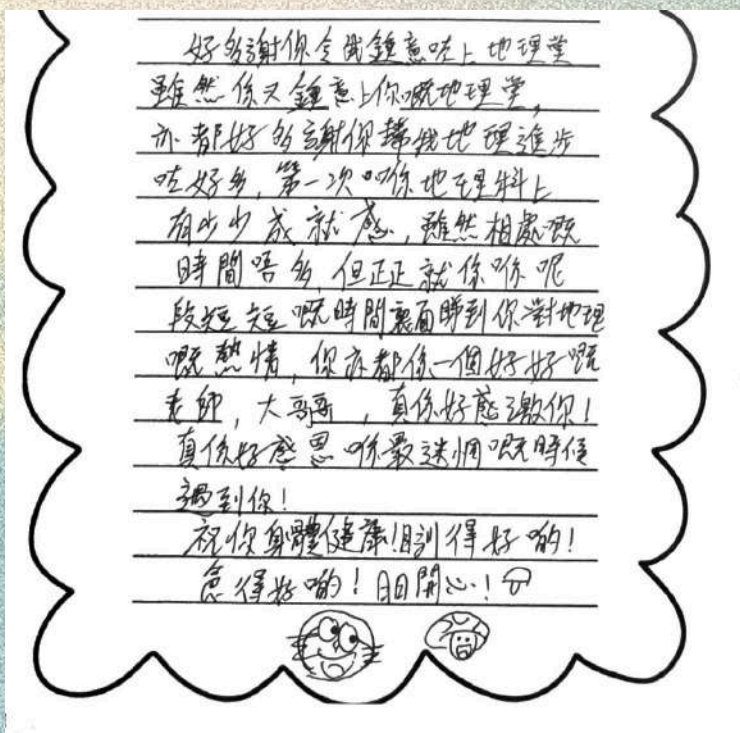 好多謝你令我鍾意咗上地理堂
雖然係又鍾意上你嘅地理堂,
亦都好多謝你幫我地理進步
咗好多, 第一次喺地理科上
有少少成就感, 雖然相處嘅
時間唔多, 但正正就係喺呢
段短短嘅時間裏面睇到你對地理
嘅熱情, 你亦都係一個好好嘅
老師, 大哥哥, 真係好感激你!
真係好感恩喺最迷惘嘅時候
遇到你!
祝你身體健康!瞓得好啲!
食得好啲!日日開心!